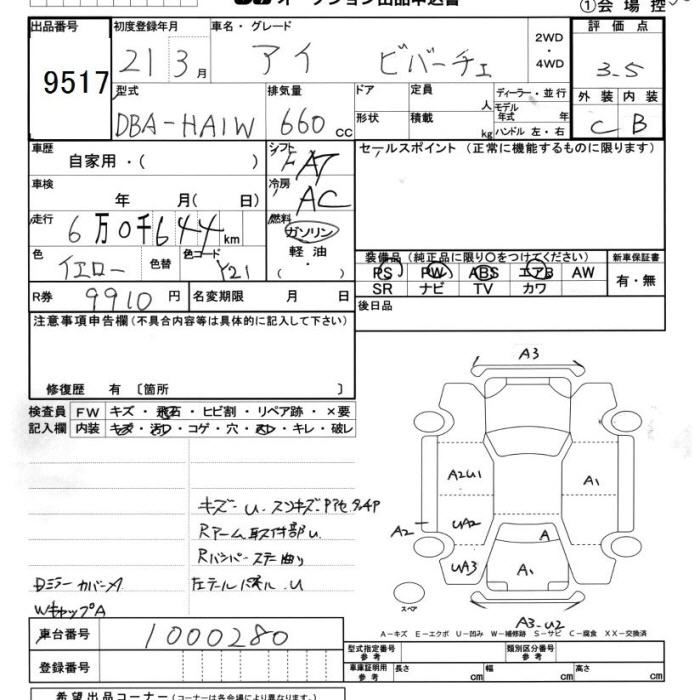 オークション出品申込書
①会場控
出品番号 初度登録年月 車名・グレード 2WD・4WD 評価点
9517 21 3月 アイ ビバーチェ 3.5
型式 排気量 ドア 定員 人 ディーラー・並行 外装 内装
DBA-HA1W 660cc 形状 積載 kg モデル年式 年 ハンドル 左・右 C B
車歴 自家用・( ) シフト FAT セールスポイント (正常に機能するものに限ります)
車検 年 月( 日) 冷房 AC
走行 6万0千644km 燃料 ガソリン
軽油・( )
色 イエロー 色替 色コード Y21 装備品 (純正品に限り○をつけてください) 新車保証書
PS PW ABS エアB AW 有・無
R券 9910円 名変期限 月 日 SR ナビ TV カワ
後日品
注意事項申告欄(不具合内容等は具体的に記入して下さい)
修復歴 有 〔箇所 〕
検査員 FW キズ・飛石・ヒビ割・リペア跡・×要
記入欄 内装 キズ・汚レ・コゲ・穴・スレ・キレ・破レ
A3
A2U1 A1
A2 UA2 A
UA3 A1
スペア
A3-U2
Rアーム取付部U
Rバンパーステー曲り
DミラーカバーA 左テールパネルU
WキャップA
A-キズ E-エクボ U-凹み W-補修跡 S-サビ C-腐食 XX-交換済
車台番号 1000280
型式指定番号 参考 類別区分番号 参考
登録番号 車庫証明用 参考 長さ cm 幅 cm 高さ cm
希望出品コーナー (コーナーは各会場により異なります。)